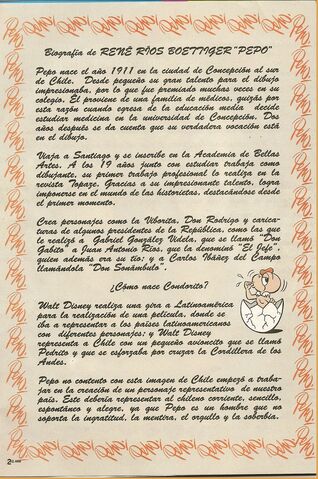 Biografía de RENÉ RÍOS BOETTIGER "PEPO"
Pepo nace el año 1911 en la ciudad de Concepción al sur
de Chile. Desde pequeño su gran talento para el dibujo
impresionaba, por lo que fue premiado muchas veces en su
colegio. El proviene de una familia de médicos, quizás por
esta razón cuando egresa de la educación media decide
estudiar medicina en la universidad de Concepción. Dos
años después se da cuenta que su verdadera vocación está
en el dibujo.
Viaja a Santiago y se inscribe en la Academia de Bellas
Artes. A los 19 años junto con estudiar trabaja como
dibujante, su primer trabajo profesional lo realiza en la
revista Topaze. Gracias a su impresionante talento, logra
imponerse en el mundo de las historietas, destacándose desde
el primer momento.
Crea personajes como la Viborita, Don Rodrigo y carica-
turas de algunos presidentes de la República, como las que
le realizó a Gabriel González Videla, que se llamó "Don
Gabito" a Juan Antonio Ríos, que la denominó "El Jefe",
quien además era su tío; y a Carlos Ibáñez del Campo
llamándola "Don Sonámbulo".
¿Cómo nace Condorito?
Walt Disney realiza una gira a Latinoamérica
para la realización de una película, donde se
iba a representar a los países latinoamericanos
con diferentes personajes; y Walt Disney
representa a Chile con un pequeño avioncito que se llamó
Pedrito y que se esforzaba por cruzar la Cordillera de los
Andes.
Pepo no contento con esta imagen de Chile empezó a traba-
jar en la creación de un personaje representativo de nuestro
país. Este debería representar al chileno corriente, sencillo,
espontáneo y alegre, ya que Pepo es un hombre que no
soporta la ingratitud, la mentira, el orgullo y la soberbia.
2